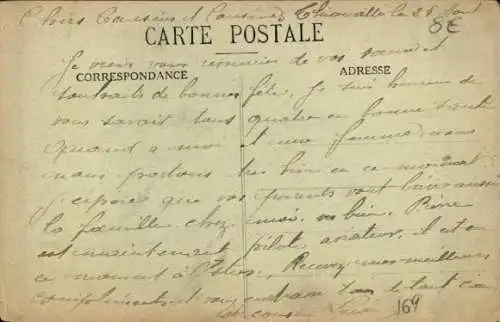 Chers Cousins et Cousines Thionville le 25 Aout
8€
CARTE POSTALE
Je viens vous remercier de vos vœux et
CORRESPONDANCE
ADRESSE
souhaits de bonne fête. Je suis heureux de
vous savoir tous quatre en bonne santé
Quand a moi et ma femme, nous
nous portons très bien en ce moment
j'espère que vos parents vont bien aussi
la famille chez moi, va bien. Pierre
est maintenant pilote aviateur, il est en
ce moment à Istres. Recevez mes meilleurs
compliments et vous
cousin
169